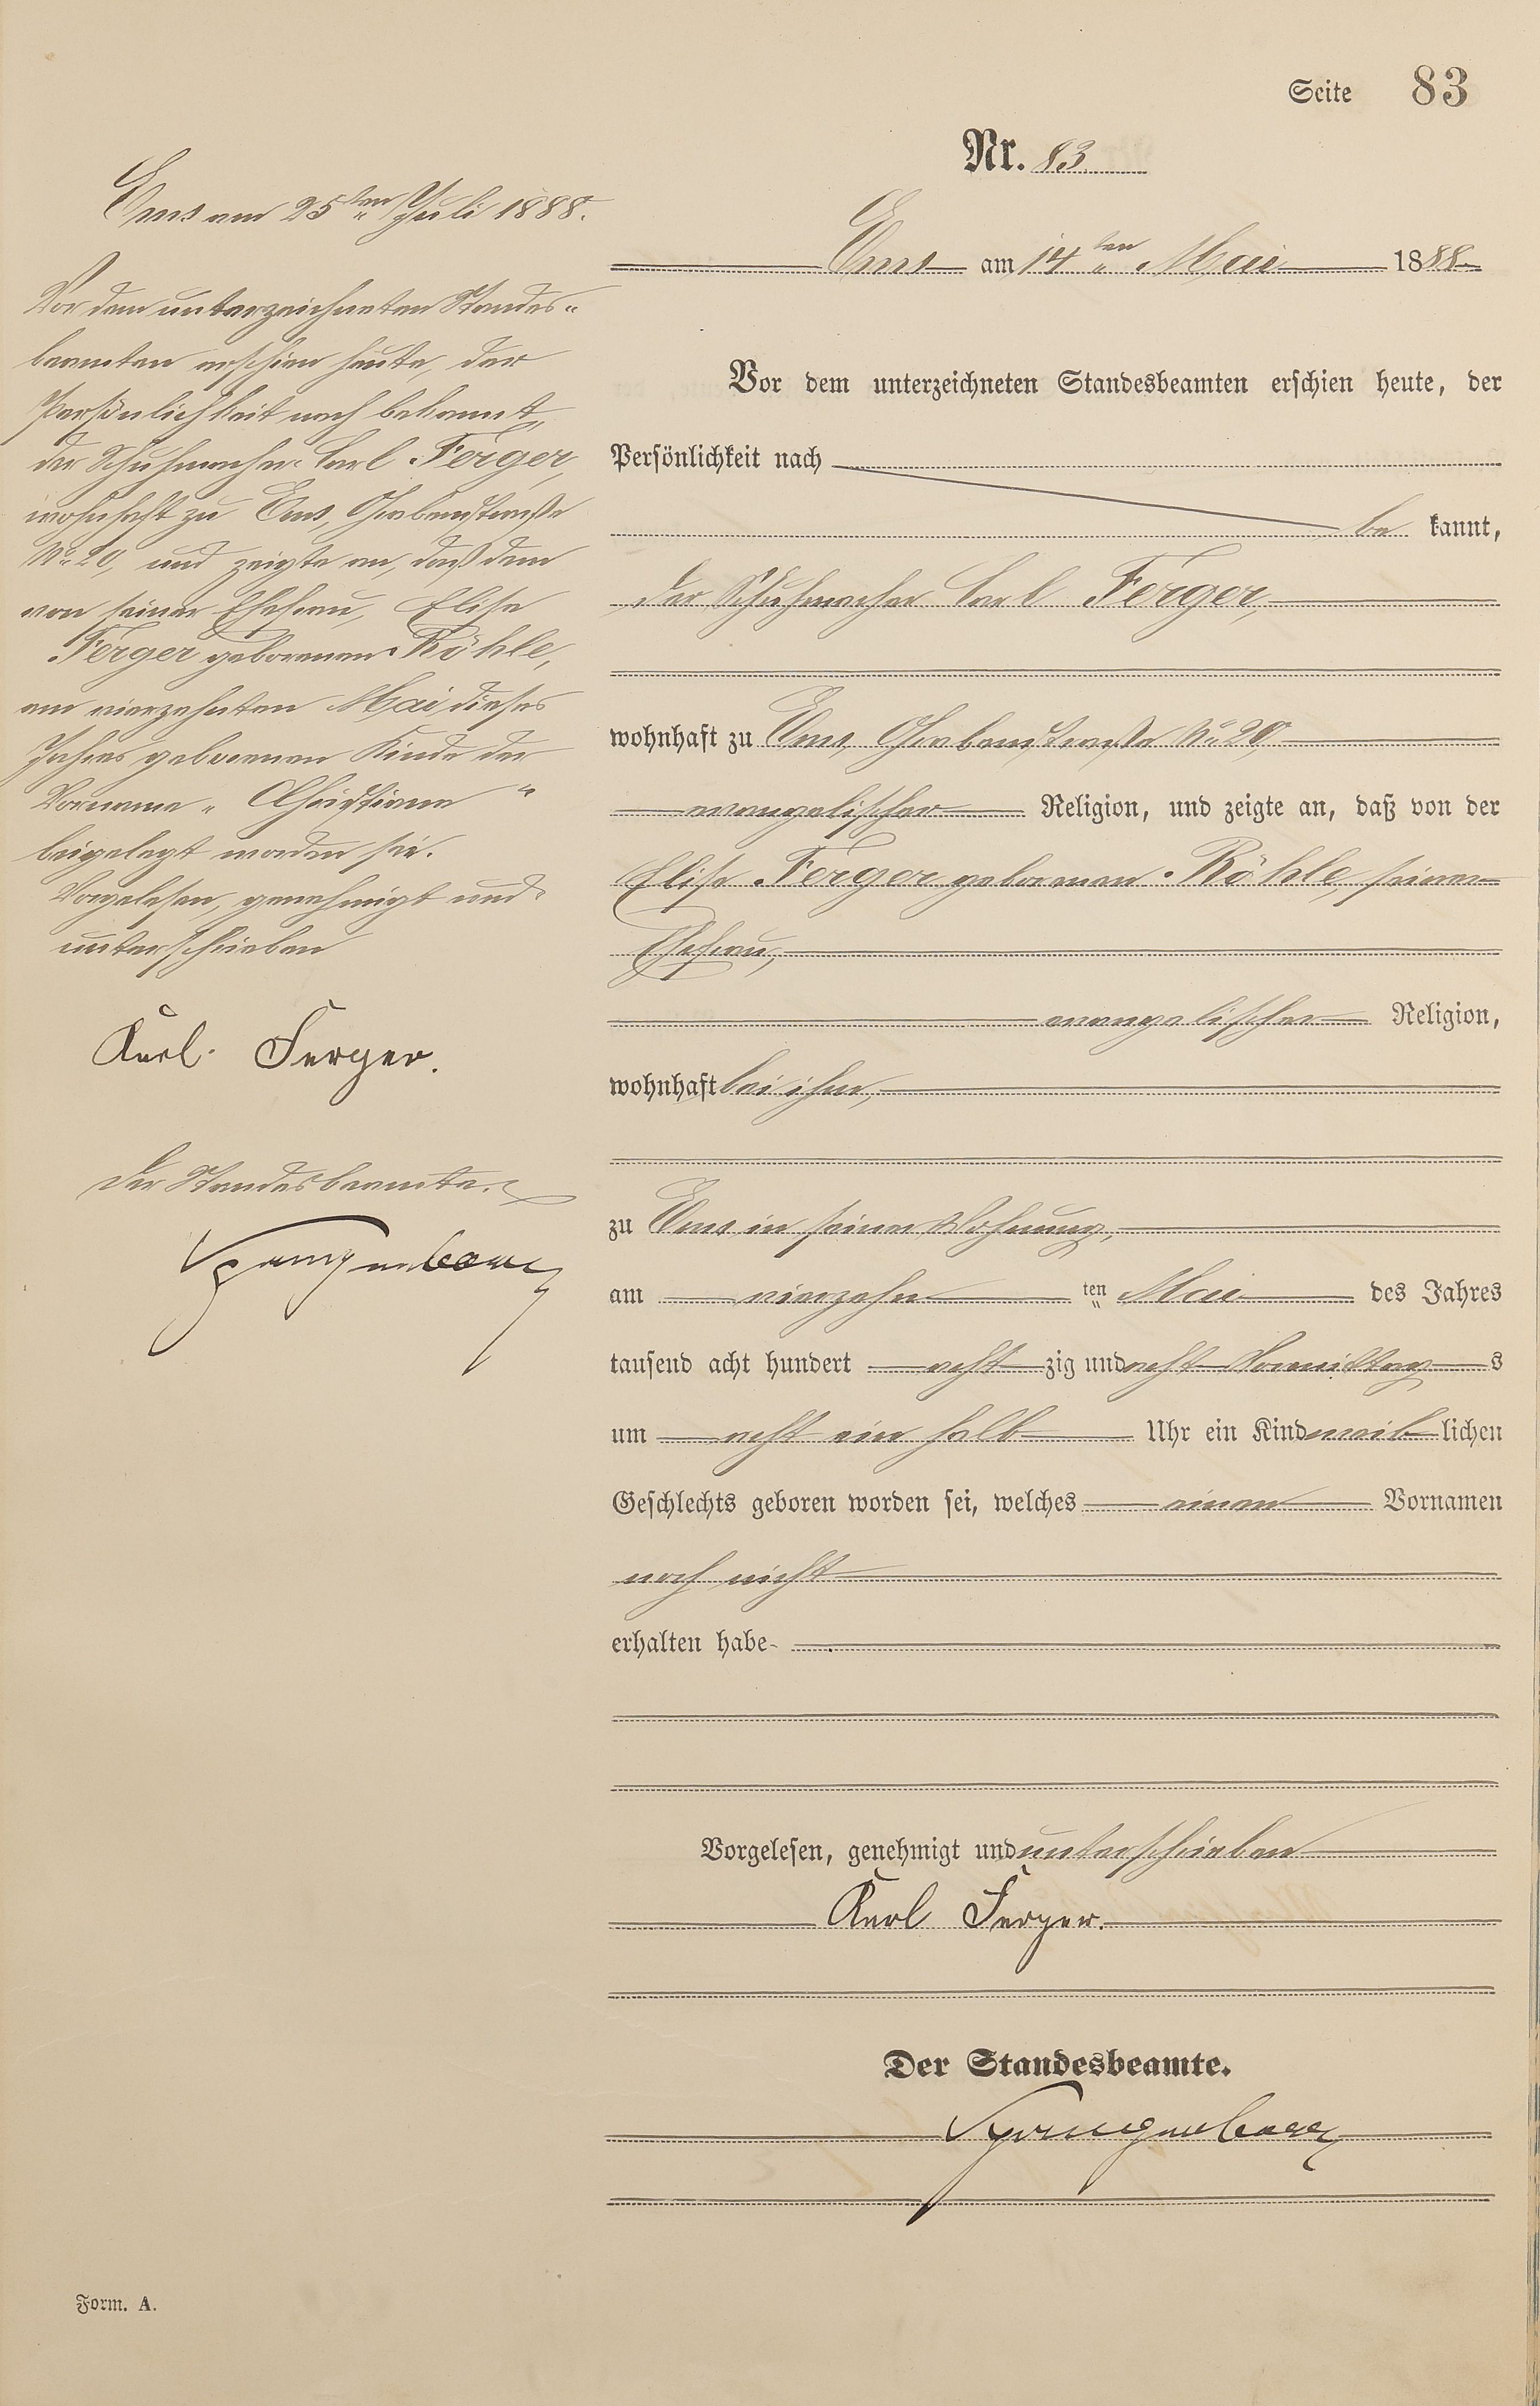 Seite 83
Nr. 83
Ems am 14ten Mai 1888
Vor dem unterzeichneten Standesbeamten erschien heute, der
Persönlichkeit nach
be kannt,
der Schuhmacher Carl Ferger,
wohnhaft zu Ems, Grabenstraße No 20,
evangelischer Religion, und zeigte an, daß von der
Elise Ferger geborenen Röhle, seiner
Ehefrau,
evangelischer Religion,
wohnhaft bei ihm,
zu Ems in seiner Wohnung,
am vierzehn ten Mai des Jahres
tausend acht hundert acht zig und acht Vormittag s
um acht ein halb Uhr ein Kind weib lichen
Geschlechts geboren worden sei, welches einen Vornamen
noch nicht
erhalten habe
Vorgelesen, genehmigt und unterschrieben
Karl Ferger.
Der Standesbeamte.
Ems am 25ten Juli 1888.
Vor dem unterzeichneten Standes-
beamten erschien heute, der
Persönlichkeit nach bekannt,
der Schuhmacher Carl Ferger,
wohnhaft zu Ems, Grabenstraße
No 20, und zeigte an, daß dem
von seiner Ehefrau, Elise
Ferger geborenen Röhle,
am vierzehnten Mai dieses
Jahres geborenen Kinde der
Vorname „Christiane"
beigelegt worden sei.
Vorgelesen, genehmigt und
unterschrieben
Karl Ferger.
Der Standesbeamte.
Form. A.